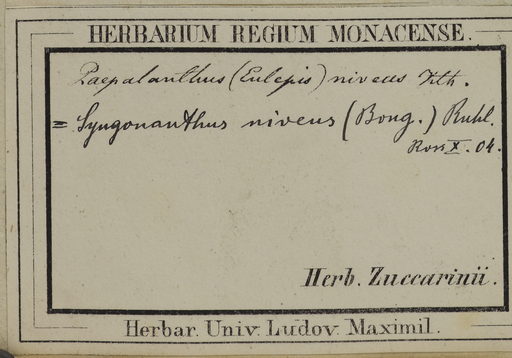 HERBARIUM REGIUM MONACENSE.
Paepalanthus (Eulepis) niveus Kth.
= Syngonanthus niveus (Bong.) Ruhl.
Ross X. 04.
Herb. Zuccarinii.
Herbar. Univ. Ludov. Maximil.